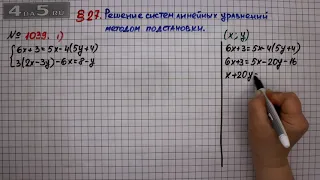 4APOK5.RU
§27. Решение систем линейных уравнений методом подстановки.
№ 1039. 1)
{6x+3=5x-4(5y+4)
3(2x-3y)-6x=8-y
(x; y)
6x+3=5x-4(5y+4)
6x+3=5x-20y-16
x+20y=